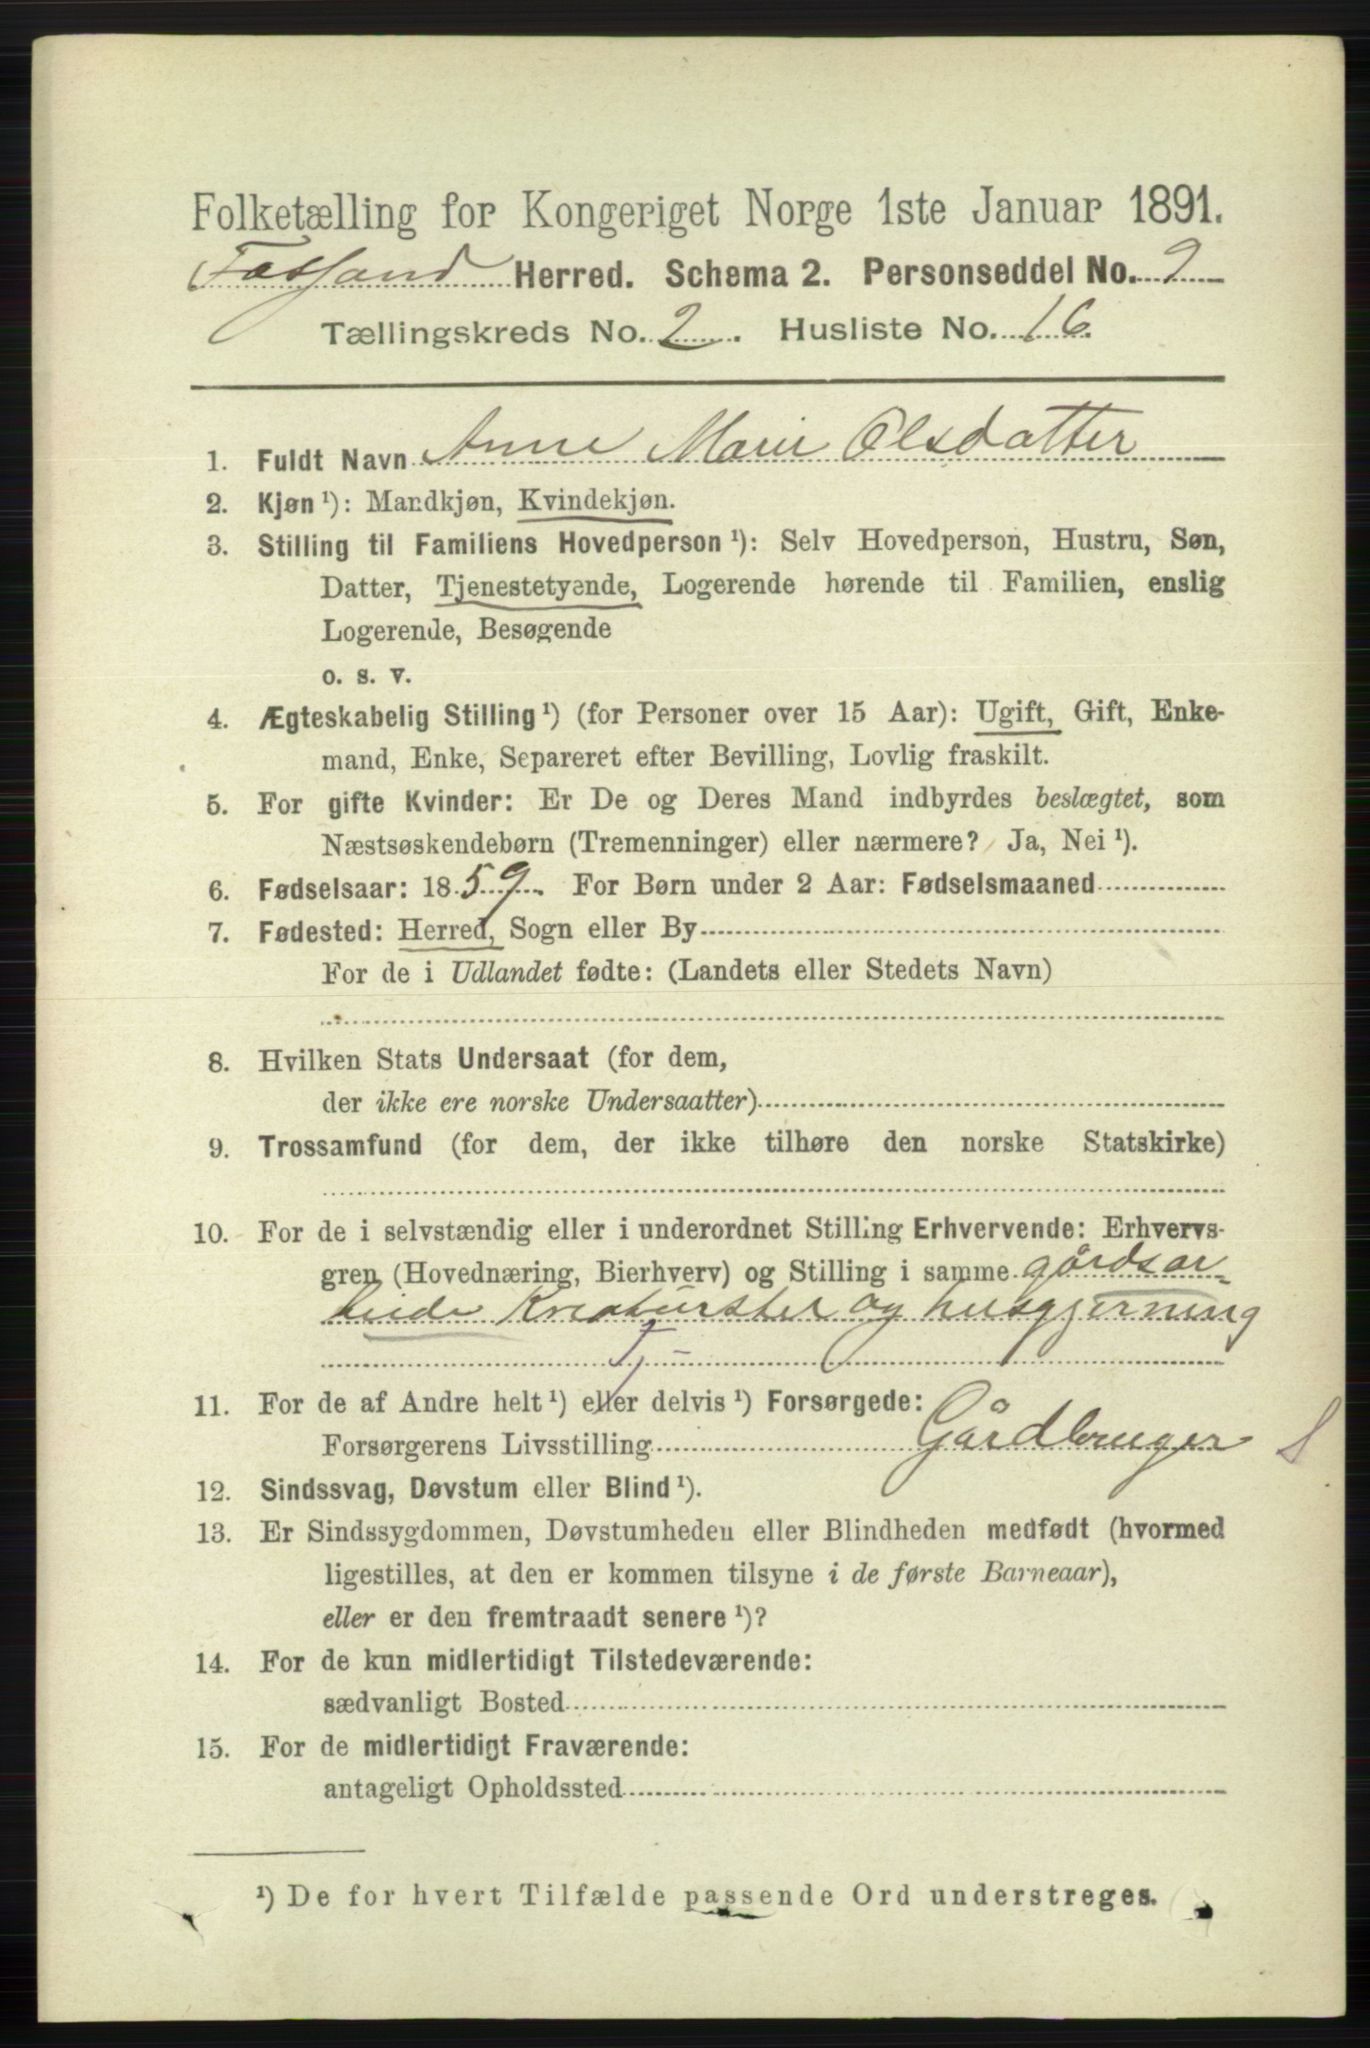 Folketælling for Kongeriget Norge 1ste Januar 1891.
Fossand Herred. Schema 2. Personseddel No. 2
Tællingskreds No. 2. Husliste No. 16.
1. Fuldt Navn Anne Marie Olsdatter
2. Kjøn ¹): Mandkjøn, Kvindekjøn.
3. Stilling til Familiens Hovedperson ¹): Selv Hovedperson, Hustru, Søn,
Datter, Tjenestetyende, Logerende hørende til Familien, enslig
Logerende, Besøgende
o. s. v.
4. Ægteskabelig Stilling ¹) (for Personer over 15 Aar): Ugift, Gift, Enke-
mand, Enke, Separeret efter Bevilling, Lovlig fraskilt.
5. For gifte Kvinder: Er De og Deres Mand indbyrdes beslægtet, som
Næstsøskendebørn (Tremenninger) eller nærmere? Ja, Nei ¹).
6. Fødselsaar: 1859. For Børn under 2 Aar: Fødselsmaaned
7. Fødested: Herred, Sogn eller By
For de i Udlandet fødte: (Landets eller Stedets Navn)
8. Hvilken Stats Undersaat (for dem,
der ikke ere norske Undersaatter)
9. Trossamfund (for dem, der ikke tilhøre den norske Statskirke)
10. For de i selvstændig eller i underordnet Stilling Erhvervende: Erhvervs-
gren (Hovednæring, Bierhverv) og Stilling i samme gårdsar-
beide Kreaturstel og husgjerning
Tj-
11. For de af Andre helt ¹) eller delvis ¹) Forsørgede:
Forsørgerens Livsstilling Gårdbruger S
12. Sindssvag, Døvstum eller Blind ¹).
13. Er Sindssygdommen, Døvstumheden eller Blindheden medfødt (hvormed
ligestilles, at den er kommen tilsyne i de første Barneaar),
eller er den fremtraadt senere ¹)?
14. For de kun midlertidigt Tilstedeværende:
sædvanligt Bosted
15. For de midlertidigt Fraværende:
antageligt Opholdssted
¹) De for hvert Tilfælde passende Ord understreges.